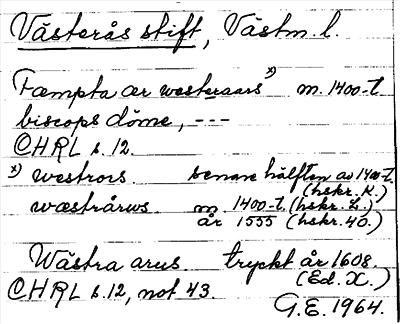 Västerås stift, Västm. l.
Fæmpta ær westeraars x) m. 1400-t.
biscops döme, ---
CHRL s. 12.
x) westrors. senare hälften av 1400-t.
(hskr. K.)
wæstrårws m. 1400-t. (hskr. L.)
år 1555 (hskr. 40.)
Wästra arus. tryckt år 1608.
(Ed. X.)
CHRL s. 12, not 43.
G.E. 1964.